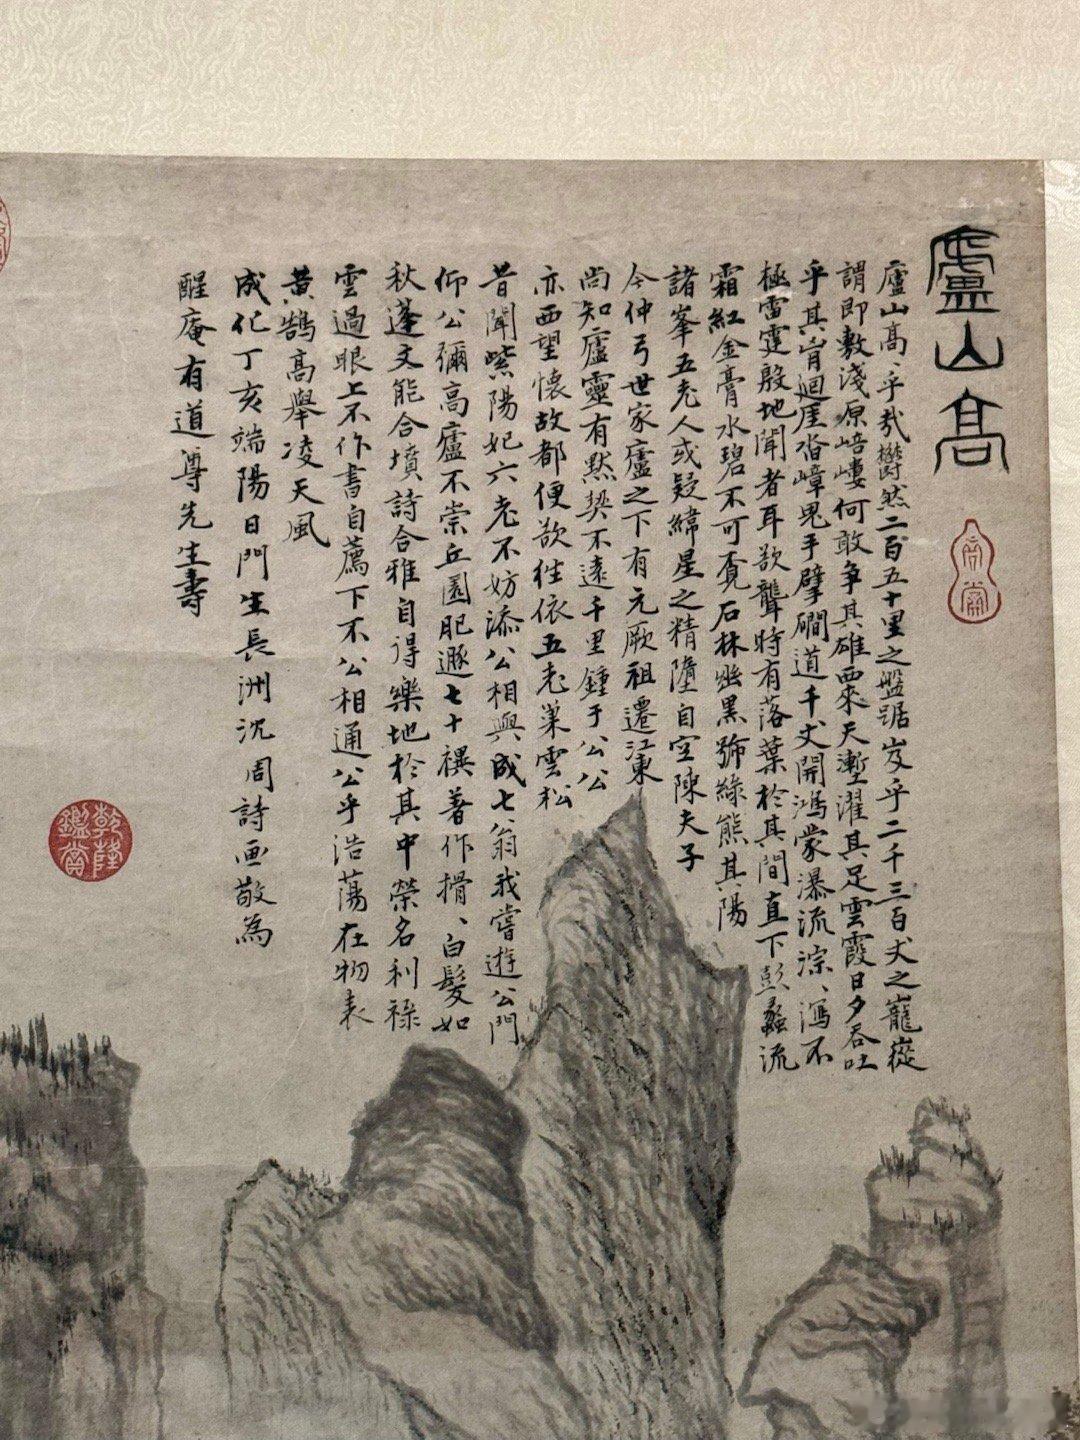 廬山高
廬山高、乎哉欝然二百五十里之盤踞岌乎二千三百丈之巃嵸
謂即敷淺原㟝嶁何敢爭其雄西來天塹濯其足雲霞日夕吞吐
乎其肯迴厓沓嶂鬼手擘磵道千丈開鴻蒙瀑流淙、瀉不
極雷霆殷地聞者耳欲聾時有落葉於其間直下彭蠡流
霜紅金膏水碧不可覔石林幽黑號綠熊其陽
諸峯五老人或疑緯星之精墮自空陳夫子
今仲弓世家廬之下有元厥祖遷江東
尚知廬靈有默契不遠千里鍾于公公
亦西望懷故都便欲往依五老巢雲松
昔聞紫陽妃六老不妨添公相與成七翁我嘗遊公門
仰公彌高廬不崇丘園肥遯七十禩著作揹、白髮如
秋蓬文能合墳詩合雅自得樂地於其中榮名利祿
雲過眼上不作書自薦下不公相通公乎浩蕩在物表
黃鵠高舉凌天風
成化丁亥端陽日門生長洲沈周詩画敬為
醒庵有道尊先生壽
乾隆鑑賞